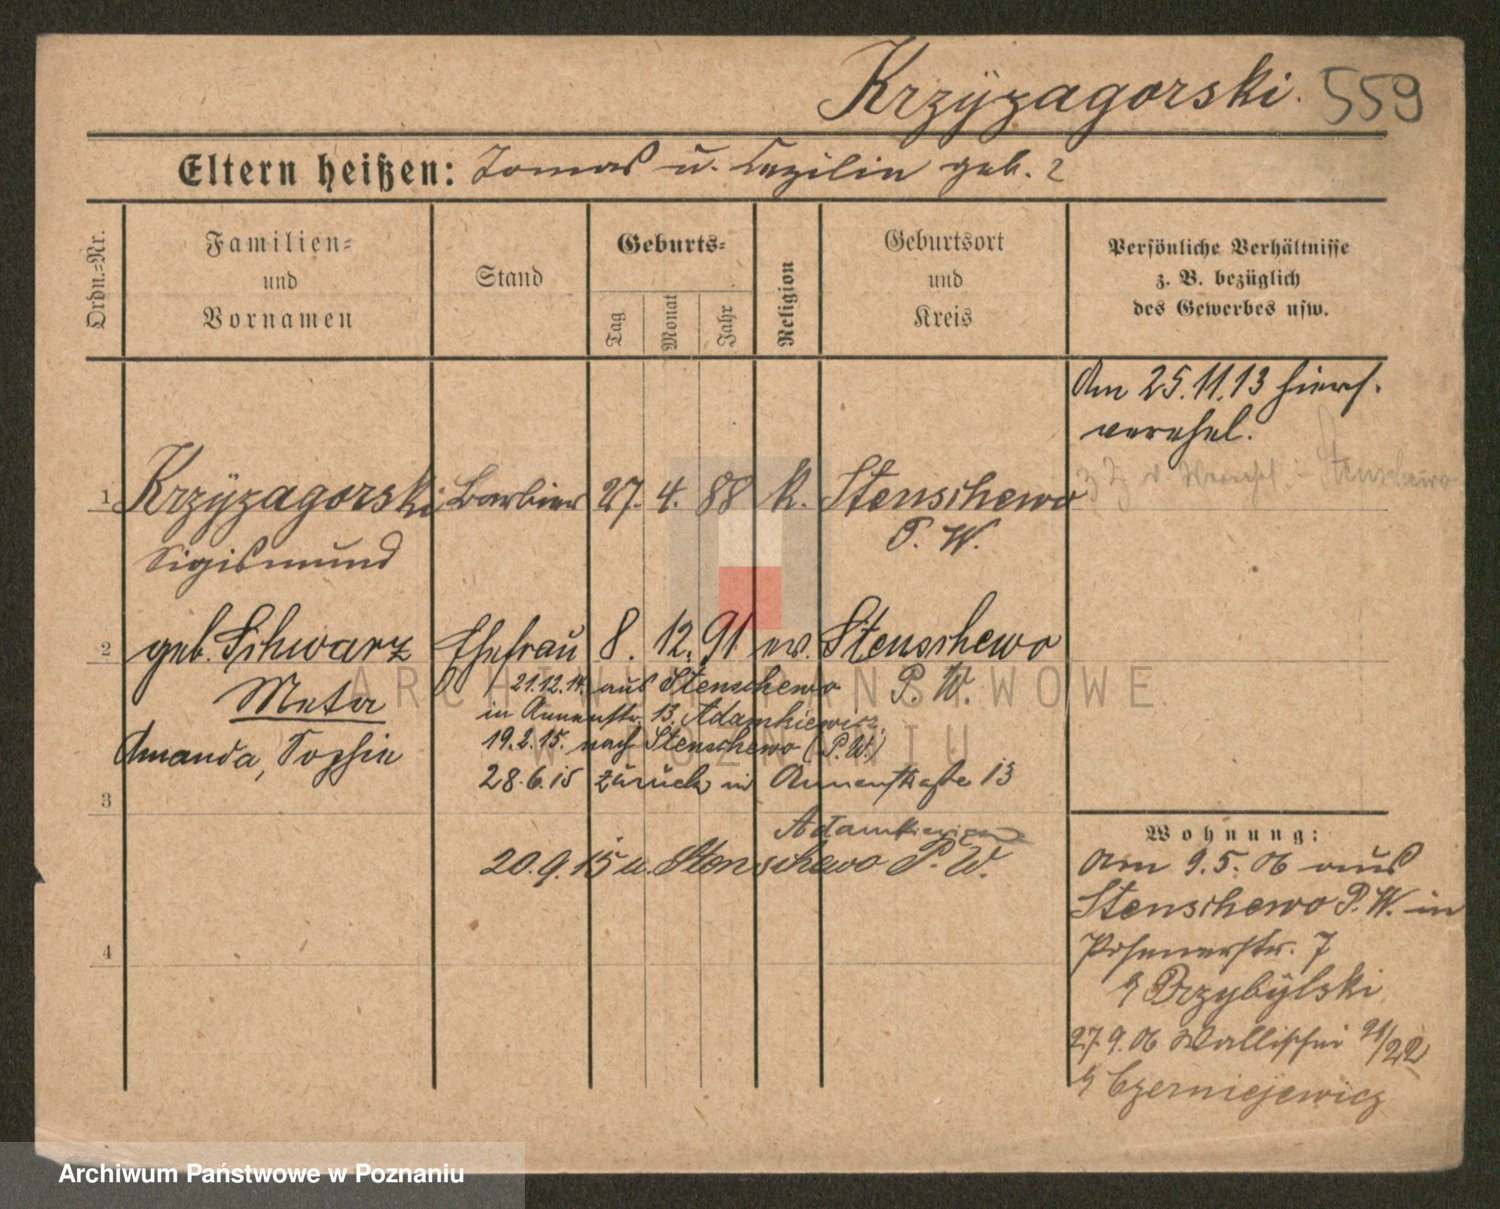 Krzÿzagorski. 559
Eltern heißen: Tomas u. Cezilie geb. ?
Ordn.=Nr.
Familien=
und
Vornamen
Stand
Geburts=
Tag
Monat
Jahr
Religion
Geburtsort
und
Kreis
Persönliche Verhältnisse
z. B. bezüglich
des Gewerbes usw.
Am 25.11.13 hiers.
verehel.
1 Krzÿzagorski Barbier 27. 4. 88 k. Stenschewo
Stenschewo
Sigismund P. W.
2 geb. Schwarz Ehefrau 8. 12. 91 ev. Stenschewo
Meta P. W.
21.12.14. aus Stenschewo
in Annenstr. 13. Adamkiewicz
Amanda, Sophie
19.2.15. nach Stenschewo (P. W.)
28.6.15 zurück in Annenstraße 13
3
Adamkiewicz
20.9.15 n. Stenschewo P. W.
4
Wohnung:
Am 9.5.06 aus
Stenschewo P. W. in
Posenerstr. 7
Przybÿlski
27.9.06 Wallischei 21/22
Czerniejewicz
ARCHIWUM PAŃSTWOWE
W POZNANIU
Archiwum Państwowe w Poznaniu